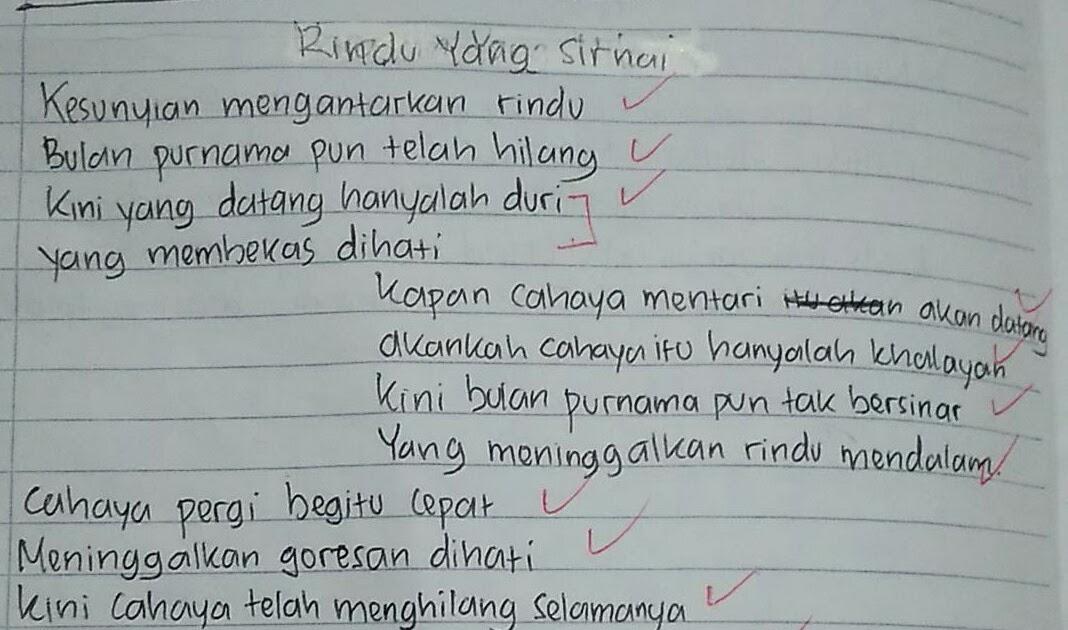 Rindu yang sirnai
Kesunyian mengantarkan rindu
Bulan purnama pun telah hilang
Kini yang datang hanyalah duri
yang membekas dihati
Kapan cahaya mentari itu akan akan datang
akankah cahaya itu hanyalah khalayah
Kini bulan purnama pun tak bersinar
Yang meninggalkan rindu mendalam
Cahaya pergi begitu cepat
Meninggalkan goresan dihati
Kini Cahaya telah menghilang selamanya